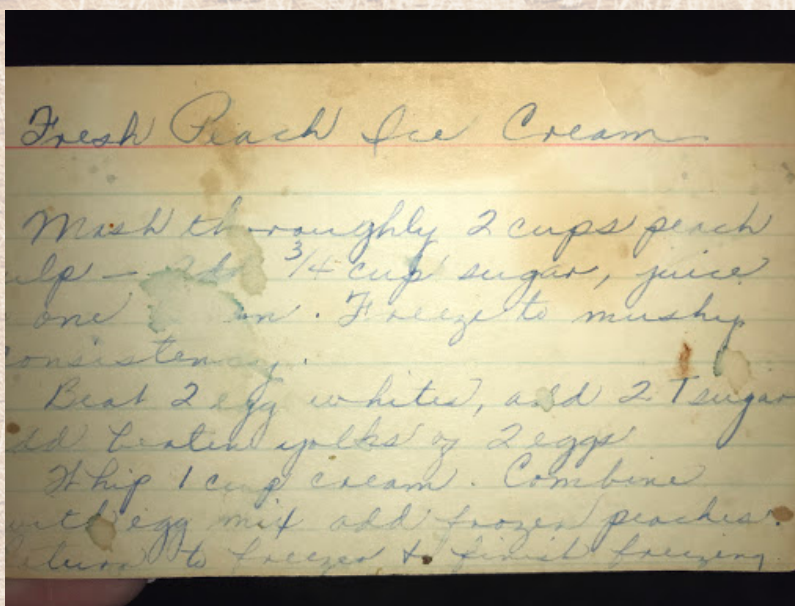 Fresh Peach Ice Cream
Mash thoroughly 2 cups peach
ulp – add 3/4 cup sugar, juice
one . Freeze to mushy
onsistency.
Beat 2 egg whites, add 2 T sugar
dd beaten yolks of 2 eggs
Whip 1 cup cream. Combine
with egg mix add frozen peaches.
eturn to freezer to finish freezing